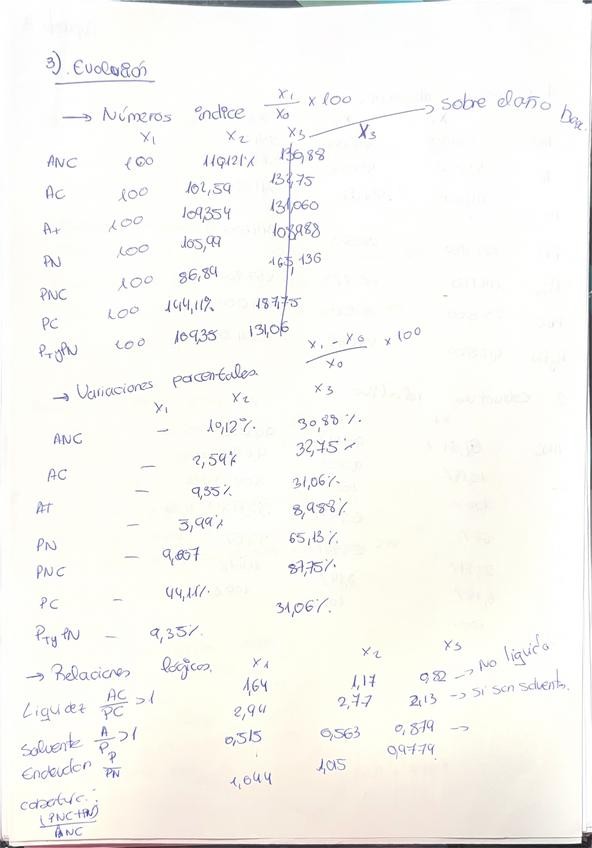 3). Evolución
→ Números índice X₁/X₀ × 100 → sobre el año base.
X₁ X₂ X₃ X₃
ANC 100 110,121% 130,88
AC 100 102,59 132,75
A+ 100 109,354 131,060
PN 100 105,99 108,988
PNC 100 86,89 165,136
PC 100 144,11% 187,75
PT y PN 100 109,35 131,06
→ Variaciones porcentales. (X₁ - X₀)/X₀ × 100
X₁ X₂ X₃
ANC — 10,12% 30,88%
AC — 2,59% 32,75%
AT — 9,35% 31,06%
PN — 5,99% 8,988%
PNC — 65,13%
PC — 44,11% 87,75%
PT y PN — 9,35% 31,06%
→ Relaciones lógicas. X₁ X₂ X₃
Liquidez AC/PC > 1 1,64 1,17 0,82 → No liquida
Solvente A/P > 1 2,94 2,77 2,13 → Si son solvents.
P/PN 0,515 0,563 0,879 →
(PNC+PN)/ANC 1,044 1,015 0,9779